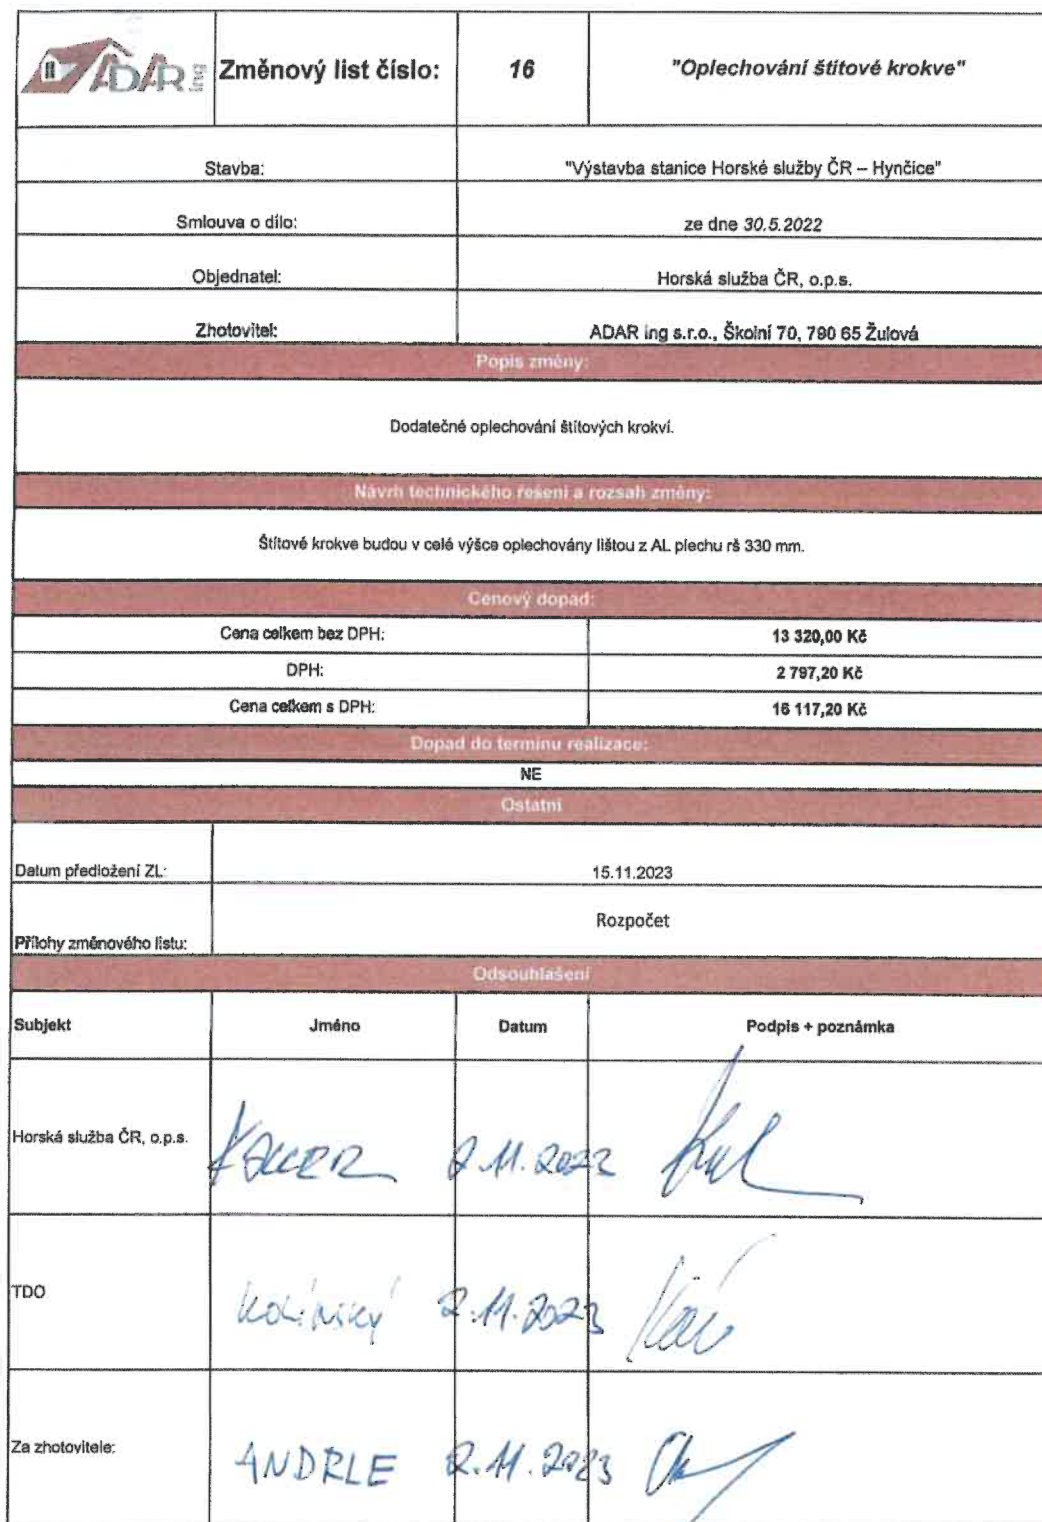 ADAR ing Změnový list číslo: 16 "Oplechování štítové krokve"
Stavba: "Výstavba stanice Horské služby ČR – Hynčice"
Smlouva o dílo: ze dne 30.5.2022
Objednatel: Horská služba ČR, o.p.s.
Zhotovitel: ADAR ing s.r.o., Školní 70, 790 65 Žulová
Popis změny:
Dodatečné oplechování štítových krokví.
Návrh technického řešení a rozsah změny:
Štítové krokve budou v celé výšce oplechovány lištou z AL plechu rš 330 mm.
Cenový dopad:
Cena celkem bez DPH: 13 320,00 Kč
DPH: 2 797,20 Kč
Cena celkem s DPH: 16 117,20 Kč
Dopad do termínu realizace:
NE
Ostatní
Datum předložení ZL: 15.11.2023
Přílohy změnového listu: Rozpočet
Odsouhlašení
Subjekt Jméno Datum Podpis + poznámka
Horská služba ČR, o.p.s. 2.11.2023
TDO 2.11.2023
Za zhotovitele: ANDRLE 2.11.2023